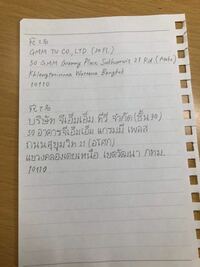 GMM TV CO.,LTD (30Fl.)
50 GMM Grammy Place, Sukhumvit 21 Rd (Asoke)
Khlongtoeinuea Wattana Bangkok
10110
บริษัท จีเอ็มเอ็ม ทีวี จำกัด (ชั้น 30)
50 อาคารจีเอ็มเอ็ม แกรมมี่ เพลส
ถนนสุขุมวิท 21 (อโศก)
แขวงคลองเตยเหนือ เขตวัฒนา กทม.
10110